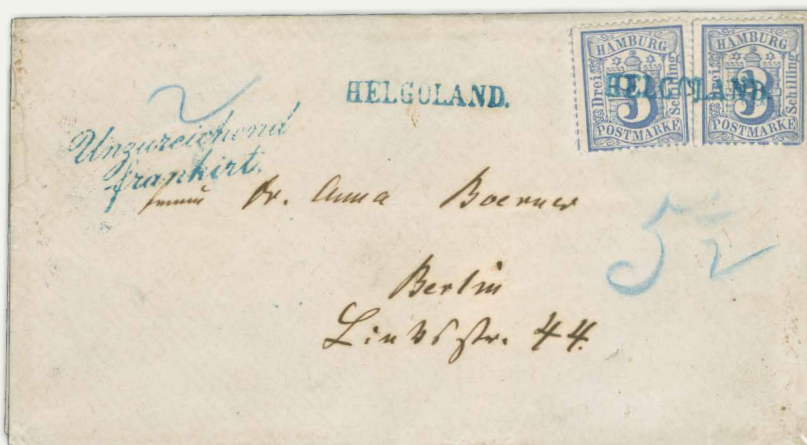 HAMBURG
Drei 3 Schilling
POSTMARKE
HAMBURG
Drei 3 Schilling
POSTMARKE
HELGOLAND.
HELGOLAND.
2
Unzureichend
frankirt.
Dr. Anna Boerner
52
Berlin
Linksstr. 44.